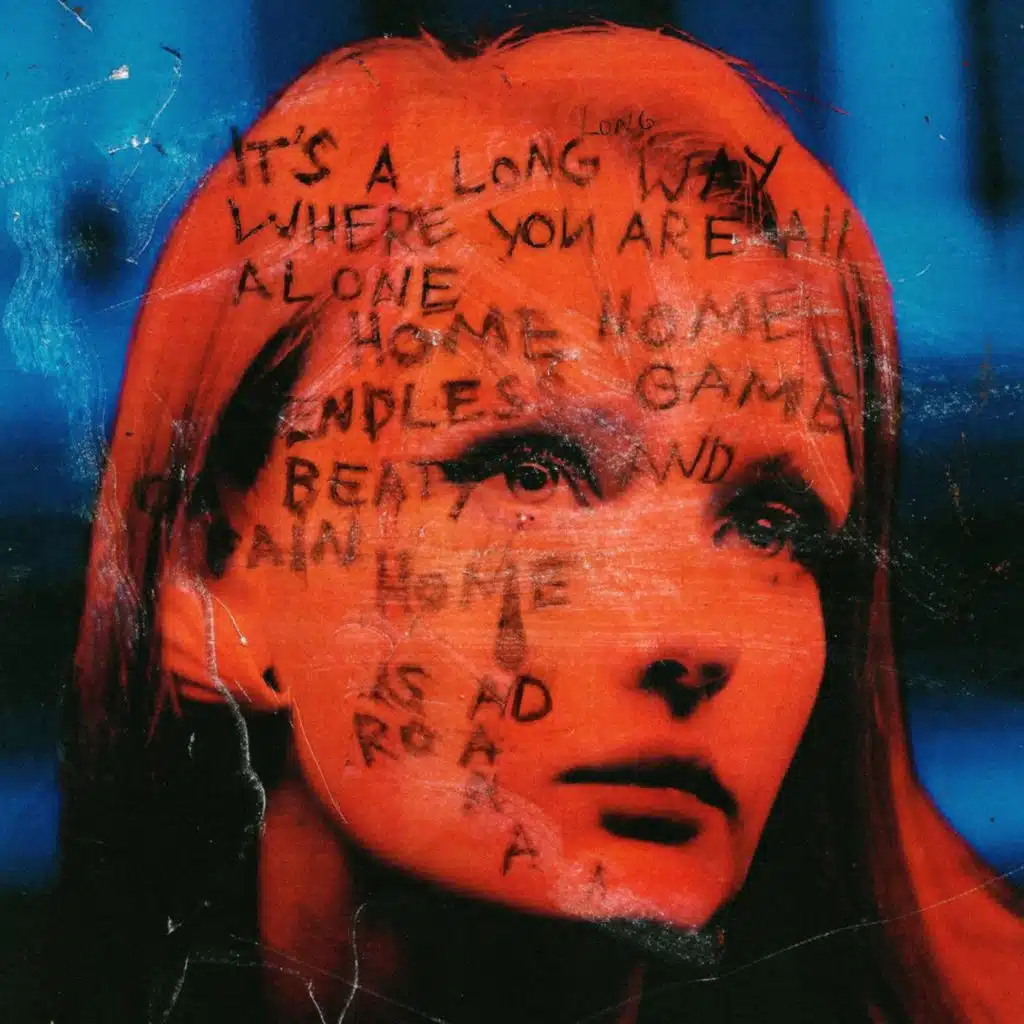 LONG
IT'S A LONG WAY
WHERE YOU ARE All
ALONE
HOME HOME
ENDLESS GAME
BEATY AND
PAIN
HOME
IS AD
ROA
A
A